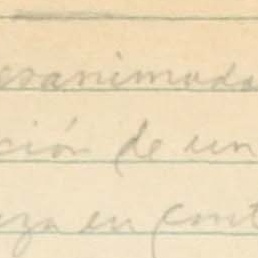 esanimada
ción de un
eza en cont